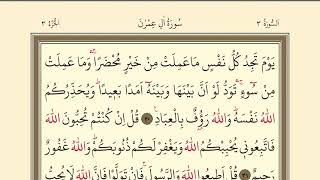 اَلسُّورَةُ ٣ سُورَةُ اٰلِ عِمْرٰنَ اَلْجُزْءُ ٣
يَوْمَ تَجِدُ كُلُّ نَفْسٍ مَاعَمِلَتْ مِنْ خَيْرٍ مُحْضَرًاۚ وَمَا عَمِلَتْ
مِنْ سُوٓءٍۚ تَوَدُّ لَوْ اَنَّ بَيْنَهَا وَبَيْنَهُٓ اَمَدًا بَعِيدًاۜ وَيُحَذِّرُكُمُ
اللّٰهُ نَفْسَهُۜ وَاللّٰهُ رَؤُ۫فٌ بِالْعِبَادِ ﴿٣٠﴾ قُلْ اِنْ كُنْتُمْ تُحِبُّونَ اللّٰهَ
فَاتَّبِعُونِي يُحْبِبْكُمُ اللّٰهُ وَيَغْفِرْ لَكُمْ ذُنُوبَكُمْۜ وَاللّٰهُ غَفُورٌ
رَحِيمٌ ﴿٣١﴾ قُلْ اَطِيعُوا اللّٰهَ وَالرَّسُولَۚ فَاِنْ تَوَلَّوْا فَاِنَّ اللّٰهَ لَا يُحِبُّ